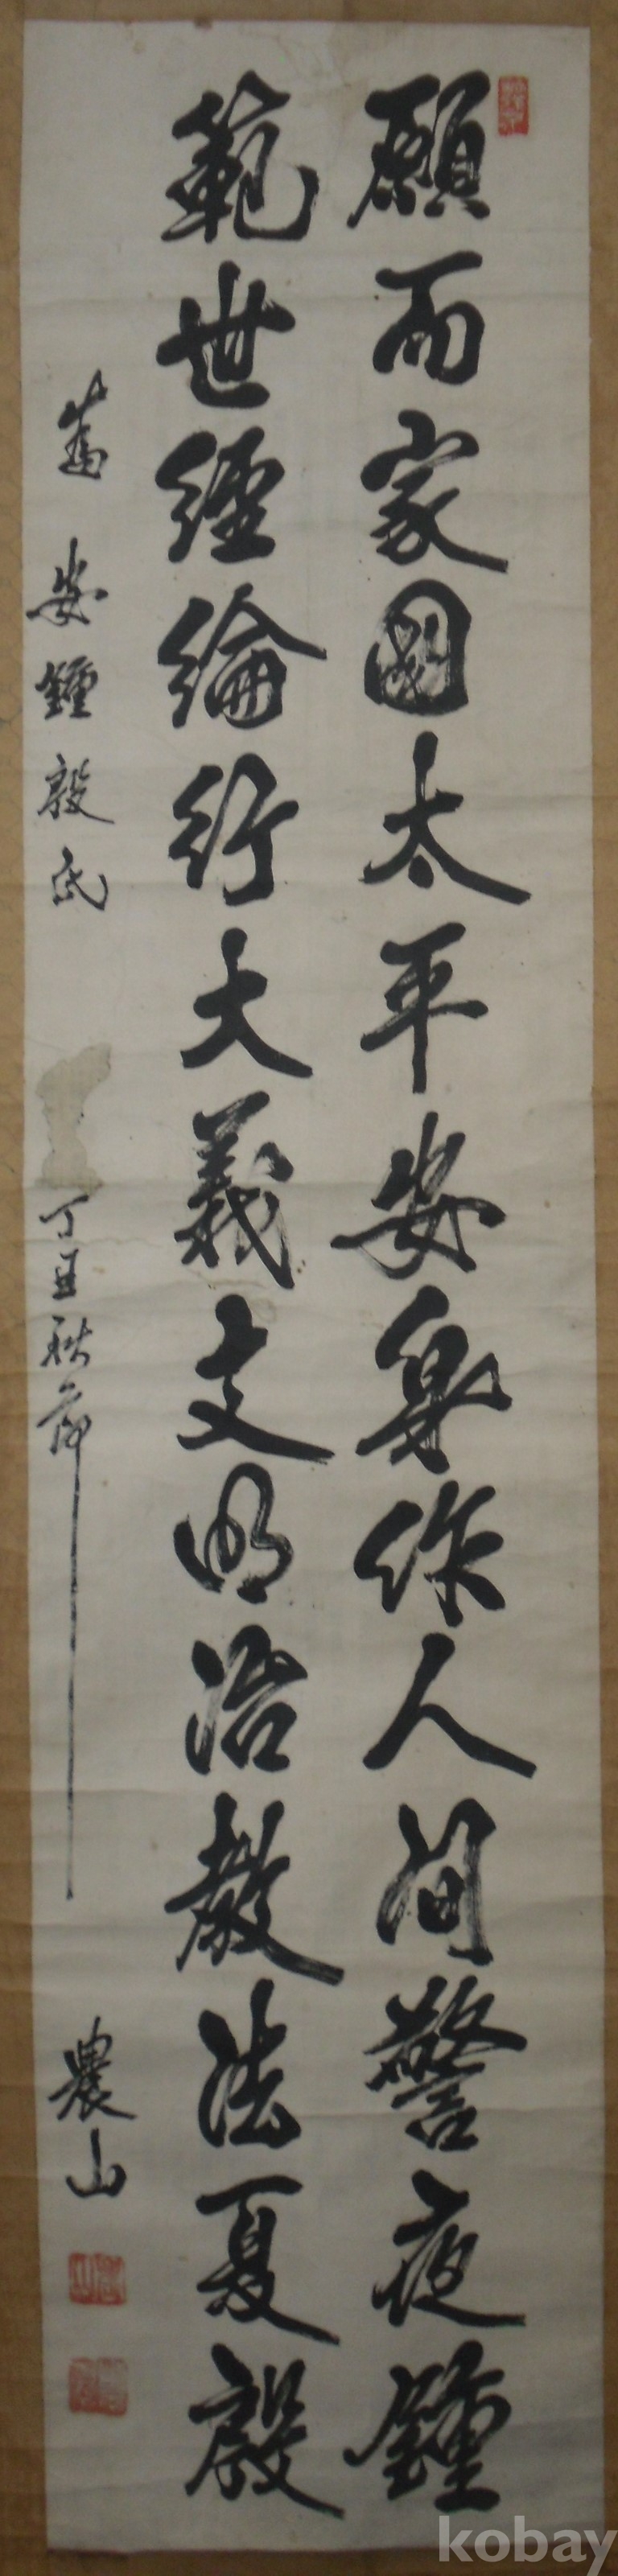 願而家國太平安身作人間警夜鍾
範世經綸行大義文明治教法夏殷
為 安鍾殷氏
丁丑秋節
農山
kobay